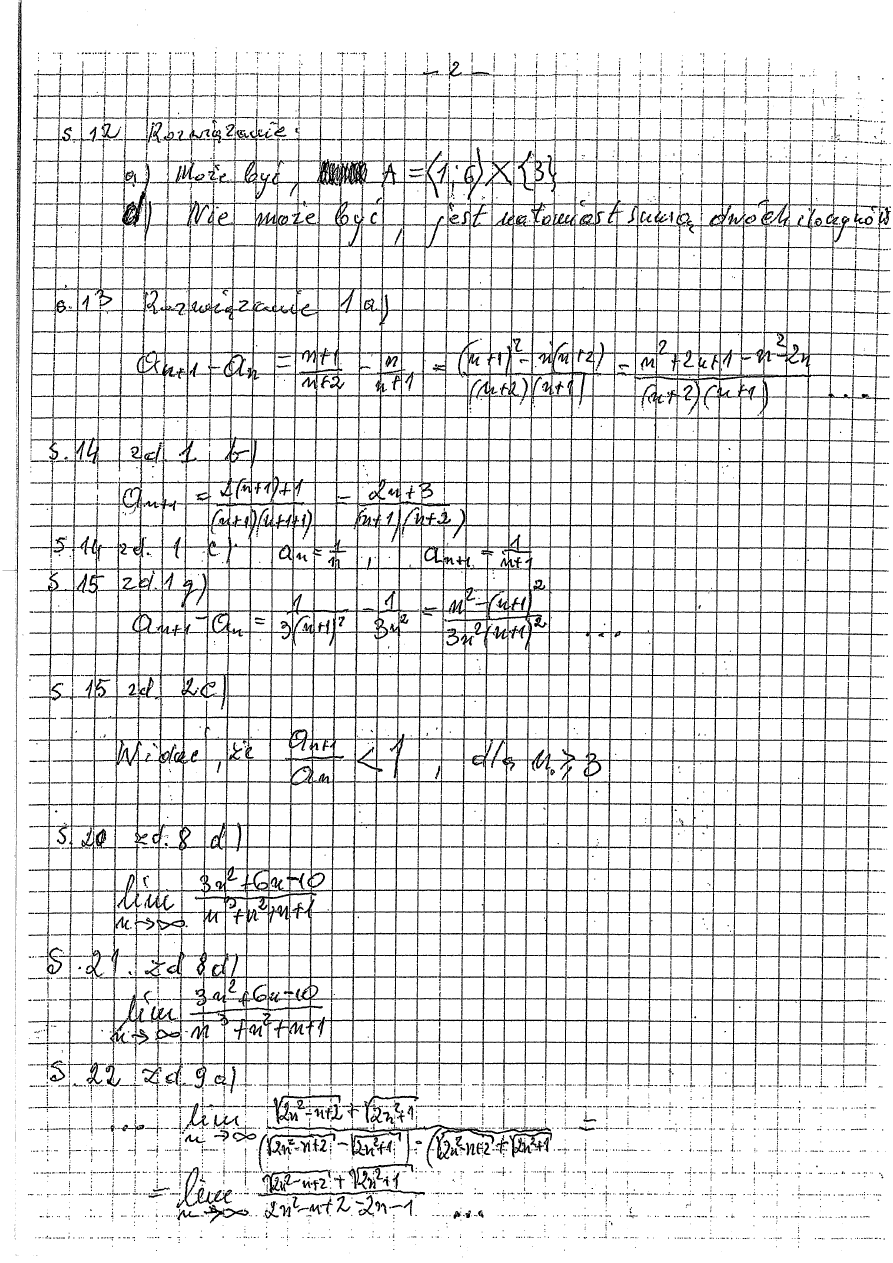 - 2 -
s. 12 Rozwiązanie:
a) Może być, A = ⟨1; 6⟩ × {3}
d) Nie może być, jest natomiast sumą dwóch iloczynów
s. 13 Rozwiązanie 1 a)
a_{n+1} - a_n = \frac{n+1}{n+2} - \frac{n}{n+1} = \frac{(n+1)^2 - n(n+2)}{(n+2)(n+1)} = \frac{n^2+2n+1-n^2-2n}{(n+2)(n+1)} ...
s. 14 zd. 1 b)
a_{n+1} = \frac{2(n+1)+1}{(n+1)(n+1+1)} = \frac{2n+3}{(n+1)(n+2)}
s. 14 zd. 1 c) a_n = \frac{1}{n}, a_{n+1} = \frac{1}{n+1}
s. 15 zd. 1 g)
a_{n+1} - a_n = \frac{1}{3(n+1)^2} - \frac{1}{3n^2} = \frac{n^2-(n+1)^2}{3n^2(n+1)^2} ...
s. 15 zd. 2c)
Widać, że \frac{a_{n+1}}{a_n} < 1, dla n ≥ 3
s. 20 zd. 8 d)
lim_{n→∞} \frac{3n^2+6n-10}{n^3+n^2+n+1}
s. 21. zd 8d)
lim_{n→∞} \frac{3n^2+6n-10}{n^3+n^2+n+1}
s. 22 zd. 9 a)
... lim_{n→∞} \frac{\sqrt{2n^2-n+2}+\sqrt{2n^2+1}}{(\sqrt{2n^2-n+2}-\sqrt{2n^2+1})·(\sqrt{2n^2-n+2}+\sqrt{2n^2+1}} =
= lim_{n→∞} \frac{\sqrt{2n^2-n+2}+\sqrt{2n^2+1}}{2n^2-n+2-2n-1} ...